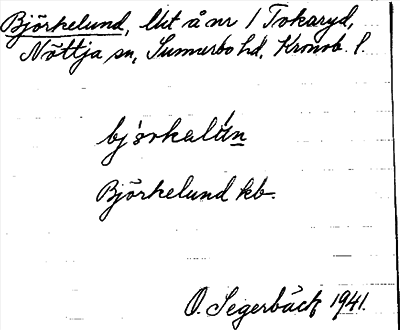 Björkelund, lht å nr 1 Tokaryd,
Nöttja sn, Sunnerbo hd, Kronob. l.
bjȯrkalún
Björkelund kb.
O. Segerbäck 1941.